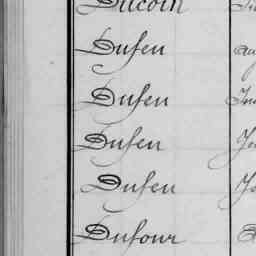 Ducoin
Dufeu
Dufeu
Dufeu
Dufeu
Dufour